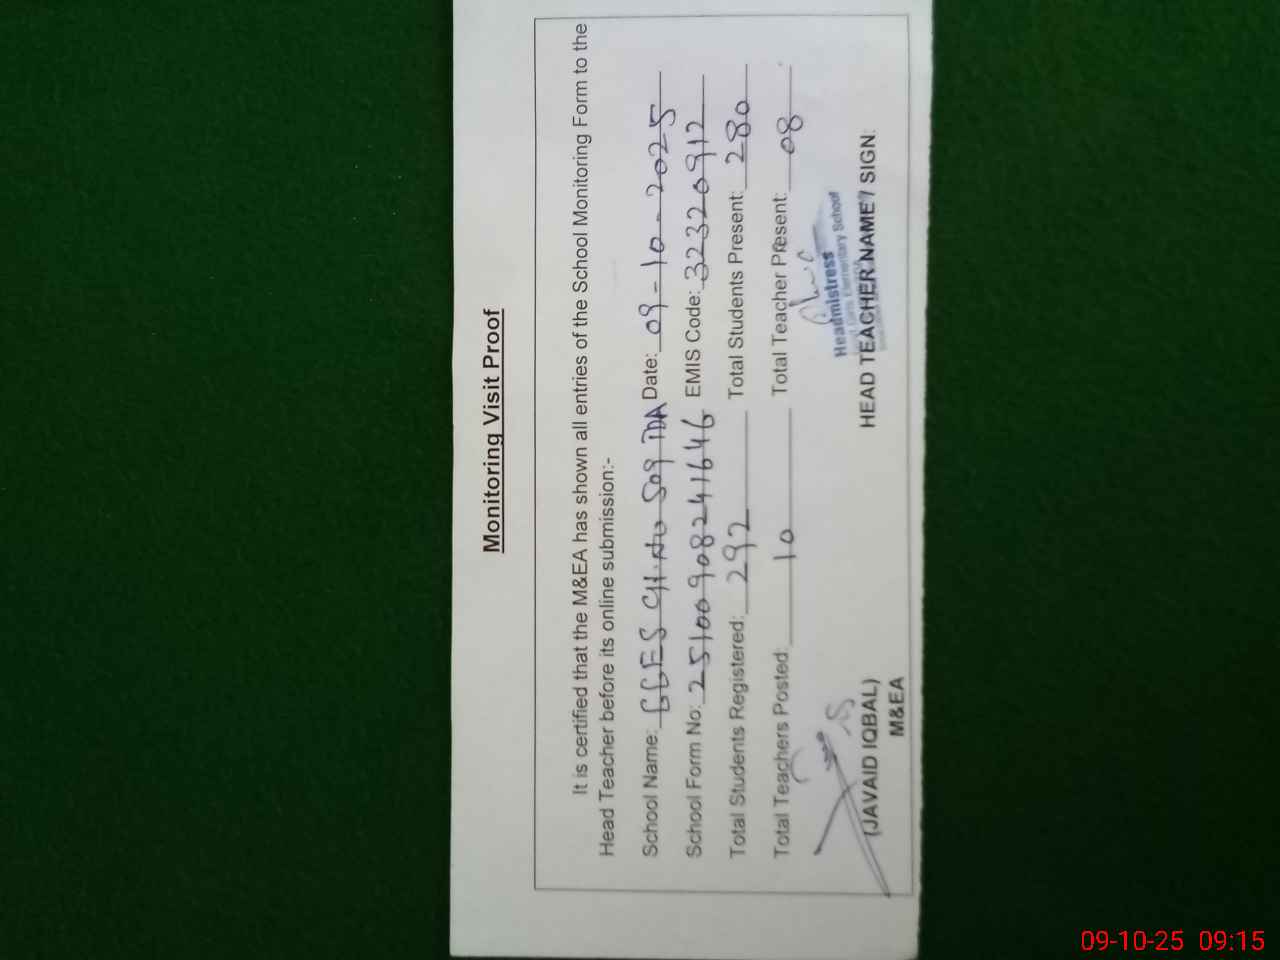 Monitoring Visit Proof
It is certified that the M&EA has shown all entries of the School Monitoring Form to the
Head Teacher before its online submission:-
School Name: GGES CH. No 509 TDA Date: 09-10-2025
School Form No: 25100908241646 EMIS Code: 32320912
Total Students Registered: 292 Total Students Present: 280
Total Teachers Posted: 10 Total Teacher Present: 08
Headmistress
Govt. Girls Elementary School
(JAVAID IQBAL) HEAD TEACHER NAME / SIGN:
M&EA
09-10-25 09:15